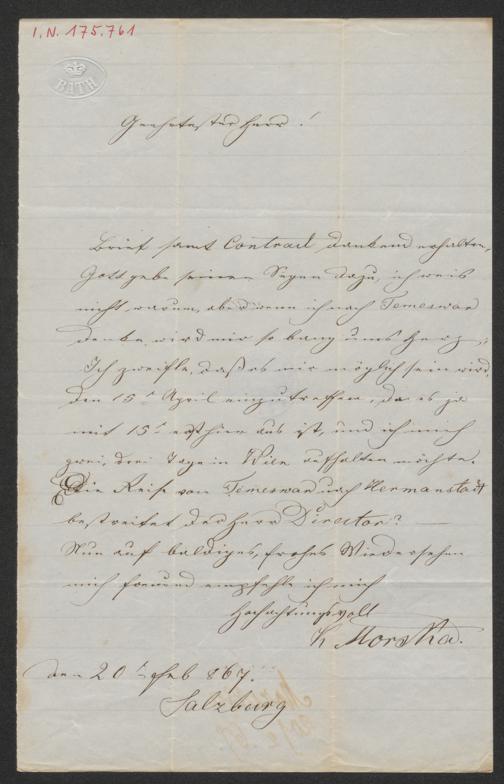 I.N. 175.761
BATH
Geehrtester Herr!
Brief samt Contract dankend erhalten,
Gott gebe seinen Segen dazu, ich weis
nicht warum, aber wenn ich nach Temeswar
denke, wird mir so bang ums Herz,
Ich zweifle, daß es mir möglich sein wird
den 15t April einzutreffen, da es ja
mit 15t erst hier aus ist, und ich mich
zwei, drei Tage in Wien aufhalten möchte.
Die Reise von Temeswar nach Hermanstadt
bestreitet der Herr Director?
Nun auf baldiges, frohes Wiedersehen
mich freuend empfehle ich mich
Hochachtungsvoll
K Morska.
den 20t Feb 867.
Salzburg